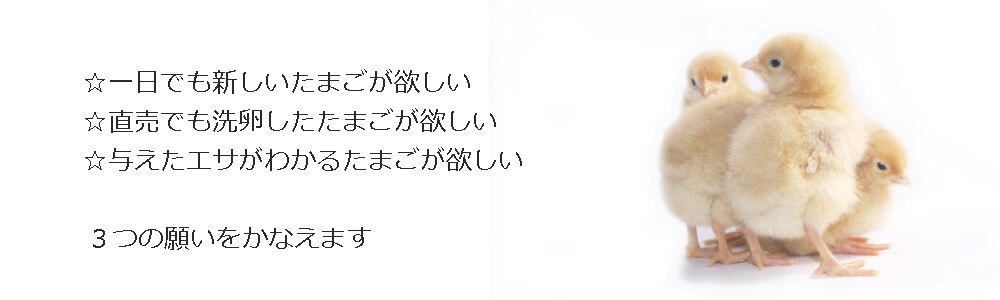 ☆一日でも新しいたまごが欲しい
☆直売でも洗卵したたまごが欲しい
☆与えたエサがわかるたまごが欲しい
３つの願いをかなえます